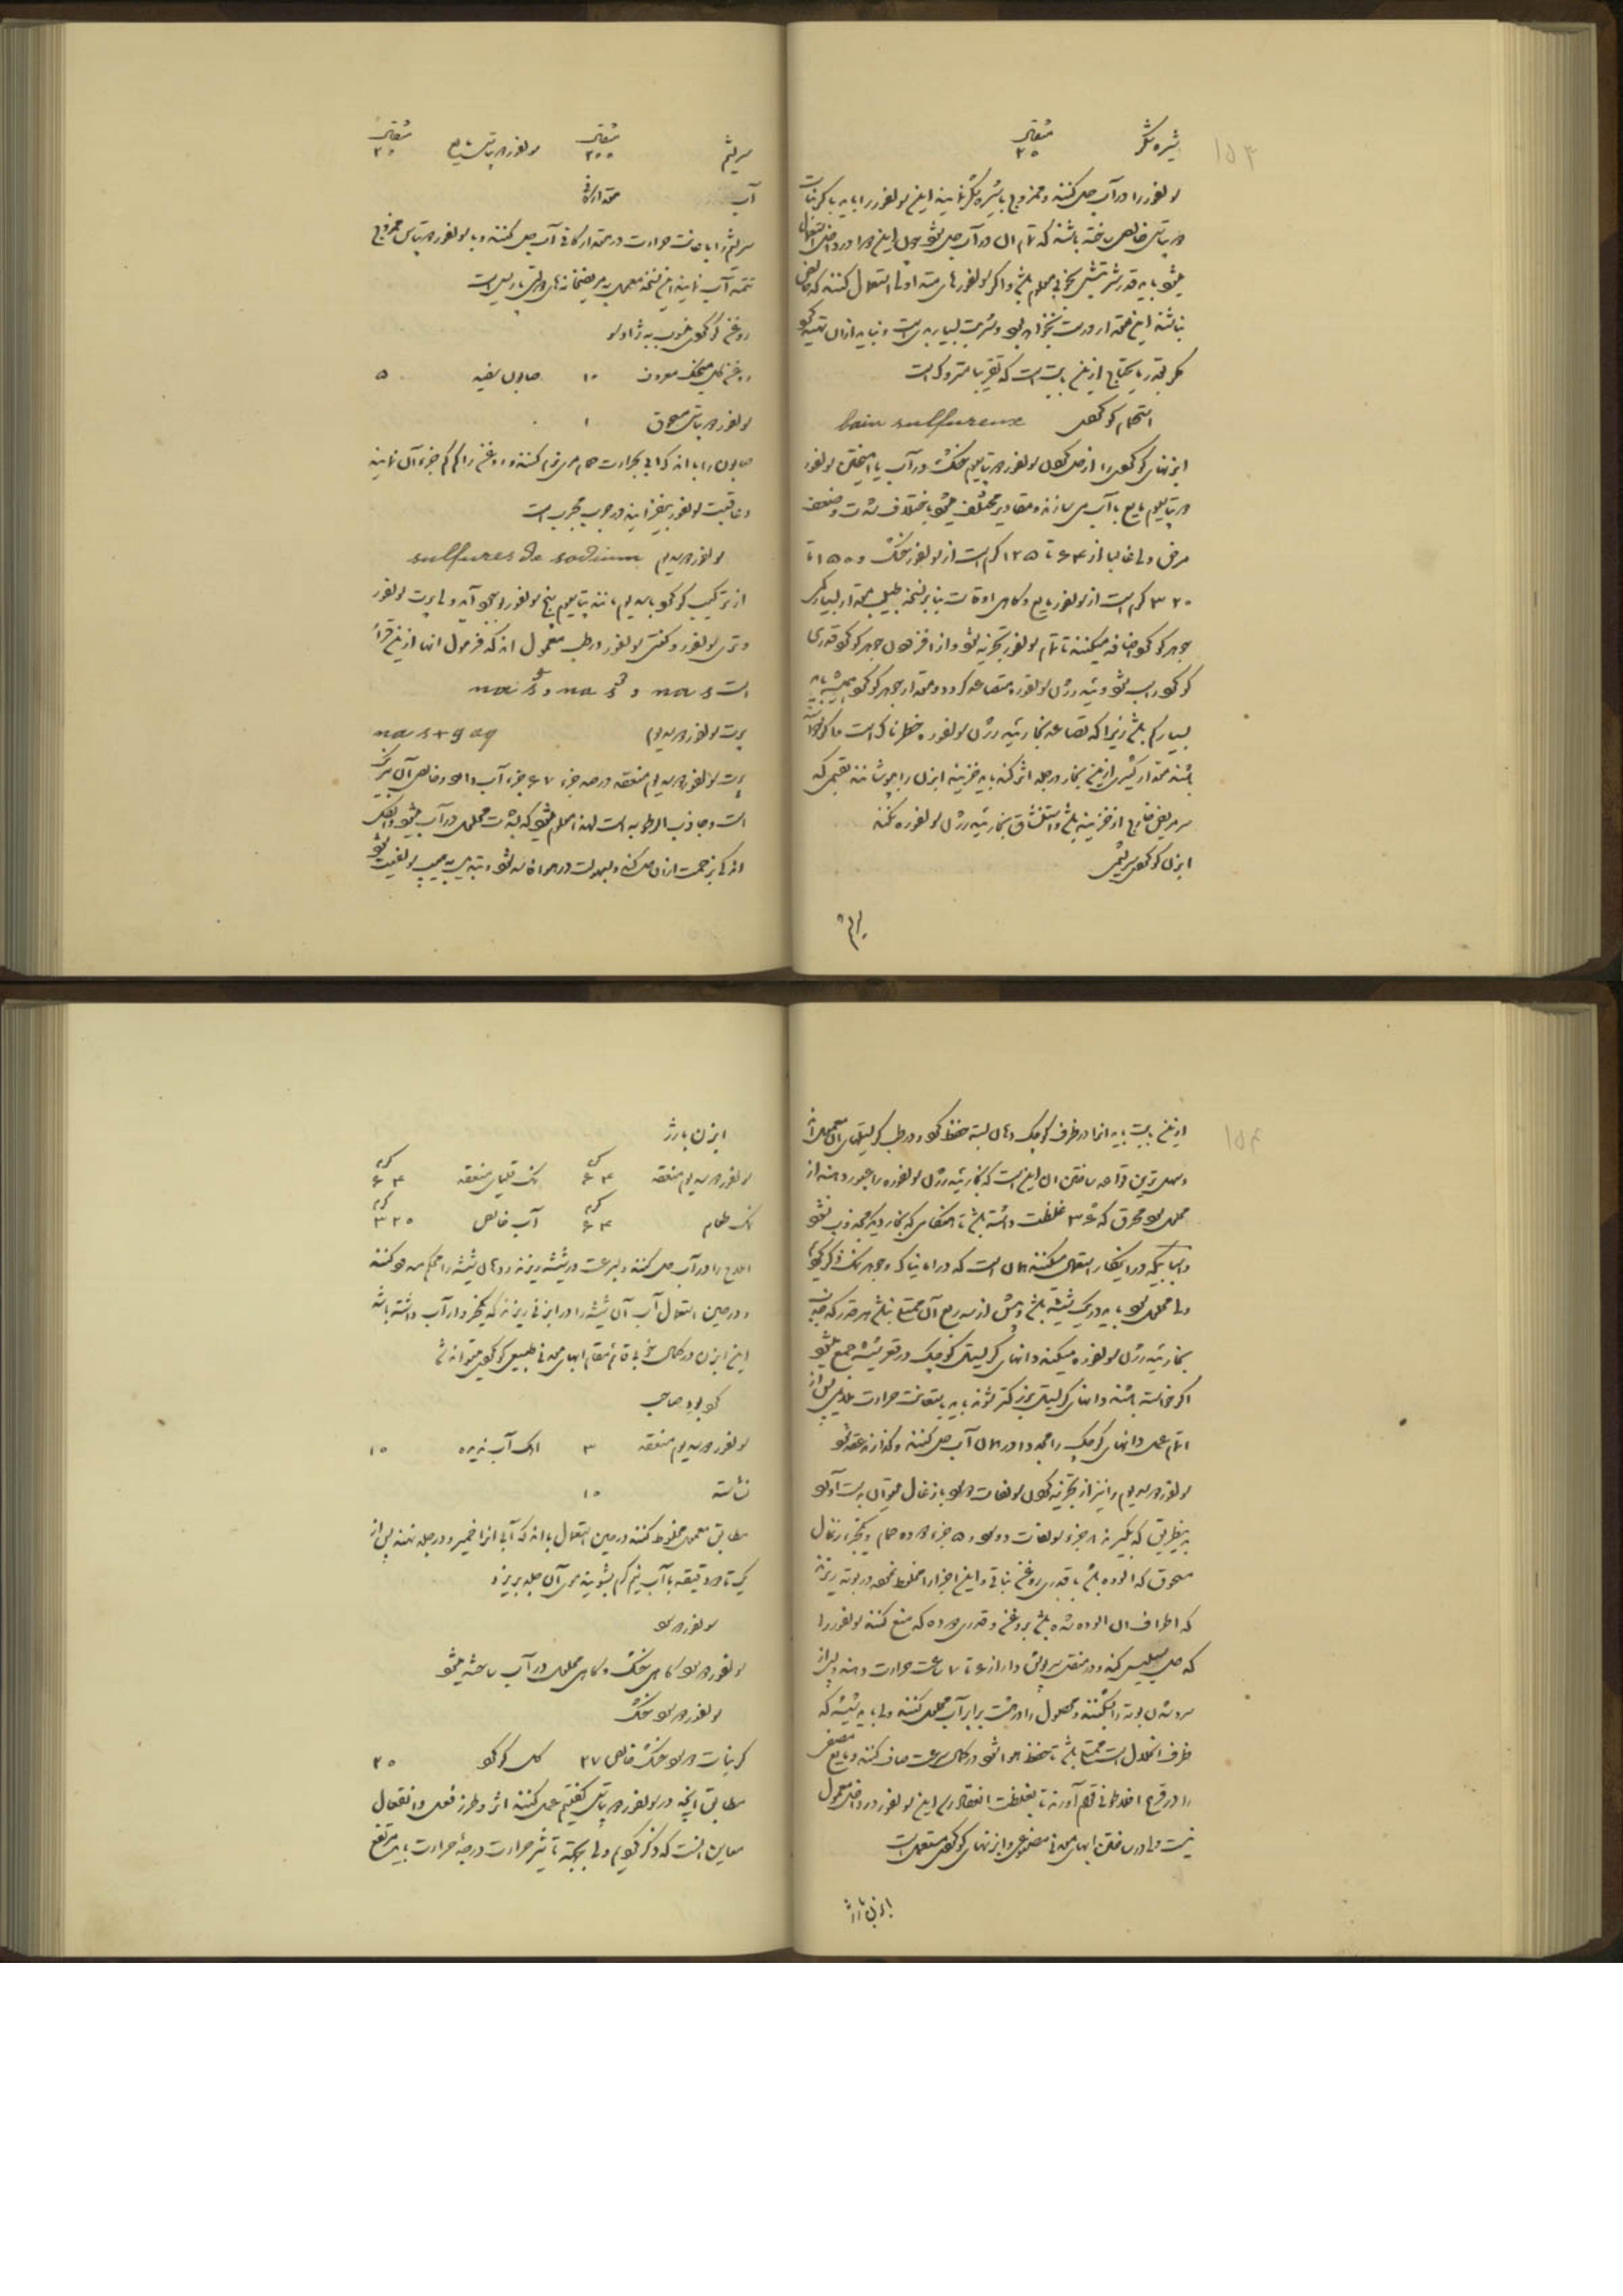 ۱۵۳
شیره شکر مثقال ۲۰
سولفور را در آب حل کنند و ممزوج با شیره شکر نمایند این سولفور را باید با کربنات
خالص ساخته باشند که تمام آن در آب حل شود چون این دوا در داخل استعمال
میشود باید قدر شربتش بخوبی معلوم باشد و اگر سولفورهای متداوله استعمال کنند که خالص
نباشند این مقدار درست نخواهد بود و شربت بسیار بدیست و نباید از آن تهیه کرد
مگر بقدر مایحتاج از این است که تقریبا متروک است
استحمام گوگردی bain sulfureux
ابزنهای گوگردی را از حل کردن سولفور دو پتاسیوم خشک در آب یا آمیختن سولفور
دو پتاسیوم مایع با آب می سازند و مقادیر مختلف میشود باختلاف شدت و ضعف
مرض ولی غالبا از ۶۴ تا ۱۲۵ گرم است از سولفور خشک و ۱۵۰ تا
۳۲۰ گرم است از سولفور مایع و گاهی اوقات بنا بر نسخه طبیب مقدار بسیار کمی
جوهر گوگرد اضافه میکنند تا تمام سولفور تجزیه شود و از افزودن جوهر گوگرد قدری
گوگرد راسب شود و ئیدرژن سولفوره متصاعد گردد و مقدار جوهر گوگرد همیشه باید
بسیار کم باشد زیرا که تصاعد بخار ئیدرژن سولفوره خطرناک است و اگر خواسته
باشند مقدار کثیری از این بخار در جلد اثر کند باید خزینه ابزن را بپوشانند بقسمی که
سر مریض خارج از خزینه باشد و استنشاق بخار ئیدرژن سولفوره نکند
ابزن گوگردی سریشمی
سریشم
سریشم مثقال ۲۰۰ سولفور دو پتاس مایع مثقال ۲۰
آب مقدار کافی
سریشم را باعانت حرارت در مقدار کافی آب حل کنند و با سولفور دو پتاس ممزوج
تتمه آب نمایند این نسخه معمول به مریضخانه های دولتی پاریس است
روغن گوگردی منسوب به ژادلو
روغن گل میخک معروف ۱۰ صابون سفید ۵
سولفور دو پتاس مسحوق ۱
صابون را با اندک آبی بحرارت حمام مریم نرم کنند و روغن را کم کم جزء آن نمایند
و عاقبت سولفور بیفزایند در جرب مجرب است
سولفور دو سدیوم sulfures de sodium
از ترکیب گوگرد با سدیوم مانند پتاسیوم پنج سولفور بوجود آید ولی پرت سولفور
و تری سولفور و کنتی سولفور در طب معمول اند که فرمول آنها از این قرار
است na s و na s³ و na s⁵
پرت سولفور دو سدیوم na s + 9 aq
پرت سولفور دو سدیوم منعقد در صد جزء ۶۷ جزء آب دارد و خالص آن بیرنگ
است و جاذب الرطوبه است لهذا معلوم میشود که بشدت محلول در آب میشود و الکل
اندکی بزحمت از آن حل کند و بسهولت در هوا فاسد شود و تبدیل به هیپوسولفیت شود
۱۵۴
از این سبب باید آنرا در ظرف کوچک دهان بسته حفظ کرد و در طب کریستال آن معمول است
و سهل ترین قواعد ساختن آن این است که بخار ئیدرژن سولفوره را عبور دهند از
محلول سود محرق که ۳۶° غلظت داشته باشد تا هنگامی که بخار دیگر مجذوب نشود
و اسبابی که در اینکار استعمال میکنند همان است که در امونیاک و جوهر نمک ذکر کردیم
ولی محلول سود باید در یک شیشه باشد و بیش از سه ربع آن ممتلی نباشد هر قدر که جذب
بخار ئیدرژن سولفوره میکند دانهای کریستال کوچک در قعر شیشه جمع میشود
اگر خواسته باشند دانهای کریستال بزرگتر شوند باید باستعانت حرارت ملایمی پس از
اتمام عمل دانهای کوچک را مجددا در همان آب حل کنند و گذارند منعقد شود
سولفور دو سدیوم را نیز از تجزیه کردن سولفات دو سود با زغال میتوان بدست آورد
بدینطریق که بگیرند ۸ جزء سولفات دو سود و ۵ جزء دوده حمام و یکجزء زغال
مسحوق که آلوده باشد با قدری روغن نباتی و این اجزا را مخلوط نموده در بوته ریزند
که اطراف آن آلوده شده باشد بروغن و قدری دوده که منع کند سولفور را
که حل سیلیس کند و در منقل سرپوش دار از ۶ تا ۷ ساعت حرارت دهند و پس از
سرد شدن بوته را بشکنند و محصول را در هشت برابر آب محلول کنند ولی باید شیشه که
ظرف انحلال است ممتلی باشد تا حفظ هوا شود و در کمال سرعت صاف کنند و مایع مصفی
را در قرع انداخته بقوام آورند تا بغلظت انعقاد رسد این سولفور در داخل معمول
نیست ولی در ساختن آبهای معدنی مصنوعی و ابزنهای گوگردی مستعمل است
ابزن بارژ
ابزن بارژ
سولفور دو سدیوم منعقد گرم ۶۴ نمک قلیای منعقد گرم ۶۴
نمک طعام گرم ۶۴ آب خالص گرم ۳۲۰
املاح را در آب حل کنند و بسرعت در شیشه ریزند و دهان شیشه را محکم مسدود کنند
و در حین استعمال آب آن شیشه را در ابزنی ریزند که یکخروار آب داشته باشد
این ابزن در کمال خوبی قائم مقام آبهای معدنی طبیعی گوگردی میتواند شد
گرد بودِ صاحب
سولفور دو سدیوم منعقد ۳ آهک آب ندیده ۱۰
نشاسته ۱۰
مطابق معمول مخلوط کنند در حین استعمال با اندک آبی آنرا خمیر و در جلد نهند پس از
یک تا دو دقیقه با آب نیم گرم بشویند موی آن جلد بریزد
سولفور دو سود
سولفور دو سود گاهی خشک و گاهی محلول در آب ساخته میشود
سولفور دو سود خشک
کربنات دو سود خشک خالص ۲۷ گل گوگرد ۲۰
مطابق آنچه در سولفور دو پتاس گفتیم عمل کنند اثر و طرز فعل و انفعال
همان است که ذکر کردیم ولی بجهة تأثیر حرارت درجه حرارت باید مرتفع